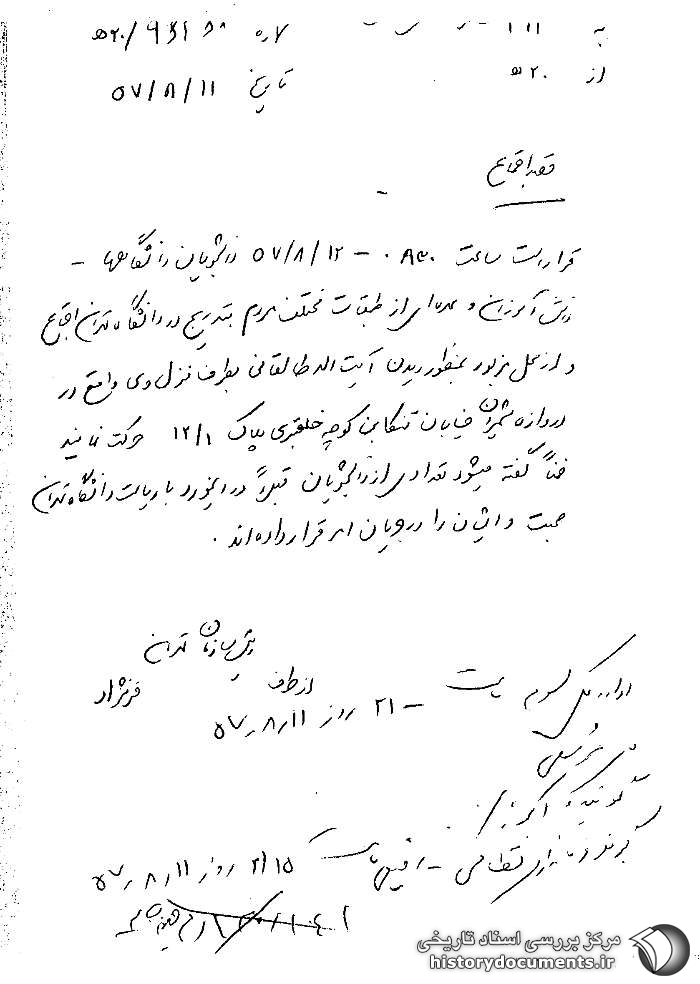 به
از ۲۰ ه
تاریخ ۵۷/۸/۱۱
قصد اجتماع
قرار است ساعت ۰۸۳۰ – ۵۷/۸/۱۲ دانشجویان دانشگاهها –
دانش آموزان و عده‌ای از طبقات مختلف مردم بتدریج در دانشگاه تهران اجتماع
و از محل مزبور بمنظور دیدن آیت الله طالقانی بطرف منزل وی واقع در
دروازه شمیران خیابان تنکابن کوچه پلاک ۱۲/۱ حرکت نمایند
ضمناً گفته میشود تعدادی از دانشجویان قبلاً در اینمورد با ریاست دانشگاه تهران
صحبت و ایشان را در جریان امر قرار داده‌اند .
رئیس سازمان تهران
از طرف
اداره کل سوم ساعت – ۲۱ روز ۵۷٫۸٫۱۱
فرمانداری نظامی – ساعت روز ۵۷٫۸٫۱۱
مرکز بررسی اسناد تاریخی
historydocuments.ir